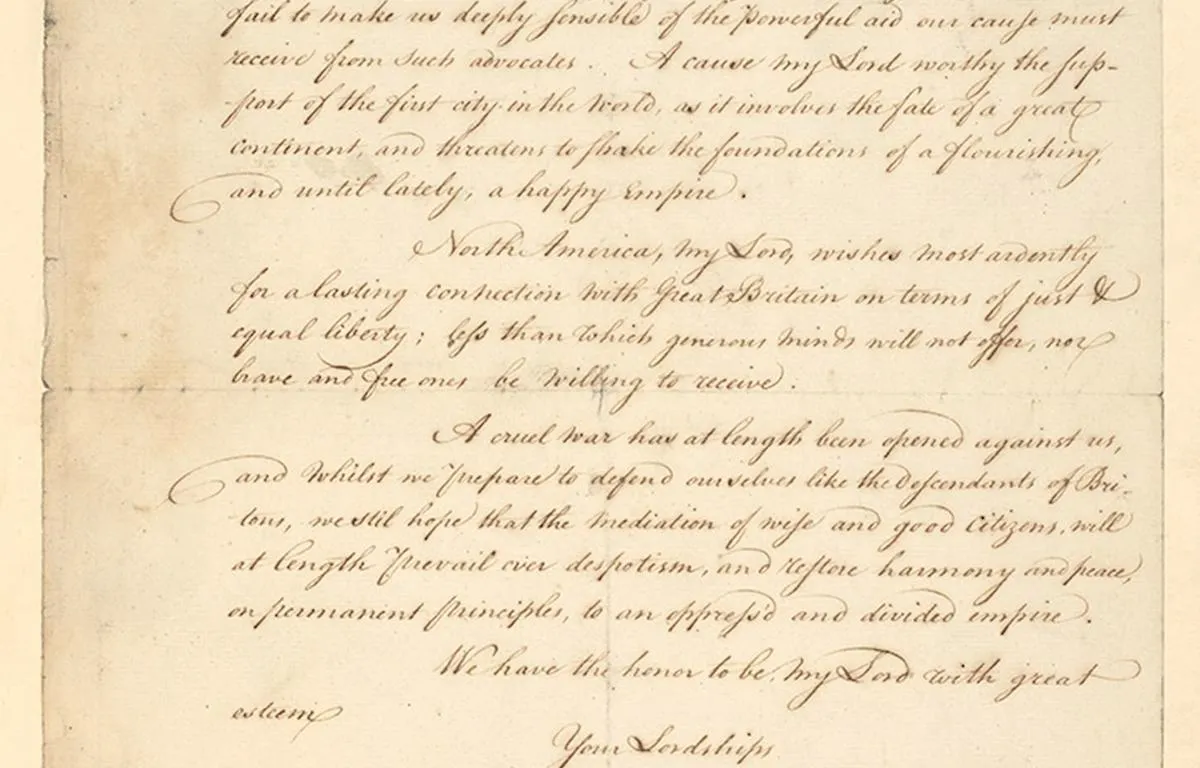 fail to make us deeply sensible of the powerful aid our cause must
receive from such advocates. A cause my Lord worthy the sup-
-port of the first city in the World, as it involves the fate of a great
continent, and threatens to shake the foundations of a flourishing,
and until lately, a happy Empire.
North America, my Lord, wishes most ardently
for a lasting connection with Great Britain on terms of just &
equal liberty; less than which generous minds will not offer, nor
brave and free ones be willing to receive.
A cruel war has at length been opened against us,
and whilst we prepare to defend ourselves like the descendants of Bri-
tons, we stil hope that the mediation of wise and good Citizens, will
at length prevail over despotism, and restore harmony and peace,
on permanent principles, to an oppress'd and divided empire.
We have the honor to be, my Lord with great
esteem
Your Lordships